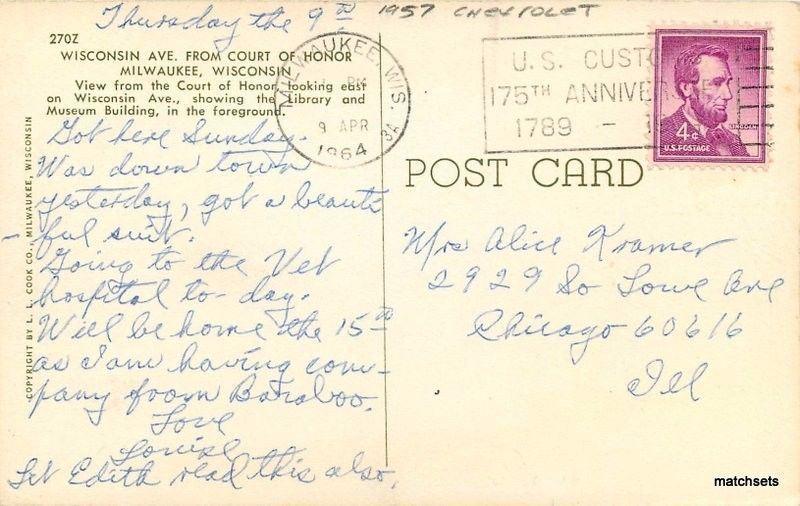 Thursday the 9th 1957 CHEVROLET
270Z
WISCONSIN AVE. FROM COURT OF HONOR
MILWAUKEE, WISCONSIN
View from the Court of Honor looking east
on Wisconsin Ave., showing the Library and
Museum Building, in the foreground.
Got here Sunday.
Was down town
yesterday, got a beauti
- ful suit.
Going to the Vet
hospital to-day.
Will be home the 15th
as I am having com-
pany from Baraboo.
Love
Louise
Let Edith read this also.
COPYRIGHT BY L. L. COOK CO., MILWAUKEE, WISCONSIN
MILWAUKEE, WIS.
PM
9 APR
1964
3A
U.S. CUST
175TH ANNIVE
1789 –
LINCOLN
4¢
U.S. POSTAGE
POST CARD
Mrs Alice Kramer
2929 So Lowe Ave
Chicago 60616
Ill
matchsets